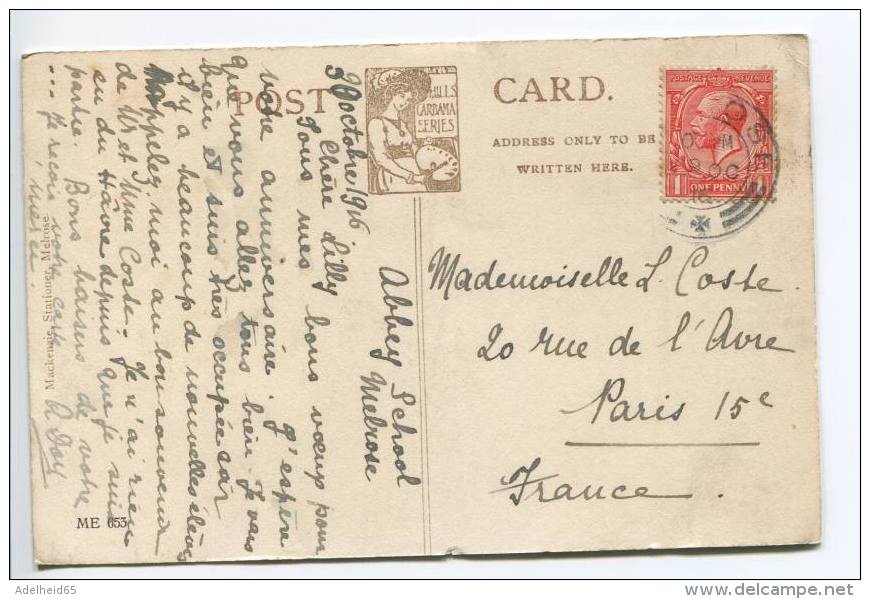 POST CARD.
HILLS CARBAMA SERIES
ADDRESS ONLY TO BE
WRITTEN HERE.
POSTAGE REVENUE
1 ONE PENNY 1
Mademoiselle L. Coste.
20 rue de l'Avre
Paris 15e
France.
Abbey School
Melrose
30 Octobre 1916
Chère Lilly
Tous mes bons vœux pour
votre anniversaire. J'espère
que vous allez tous bien. Je vais
bien et suis très occupée car
il y a beaucoup de nouvelles élèves
Rappelez moi au bon souvenir
de Mr et Mme Coste. Je n'ai rien
eu du Hâvre depuis que je suis
partie. Bons baisers de votre
... Je reçois votre carte
merci.
Mackenzie, Stationer, Melrose
ME 653
Adelheid65
www.delcampe.net